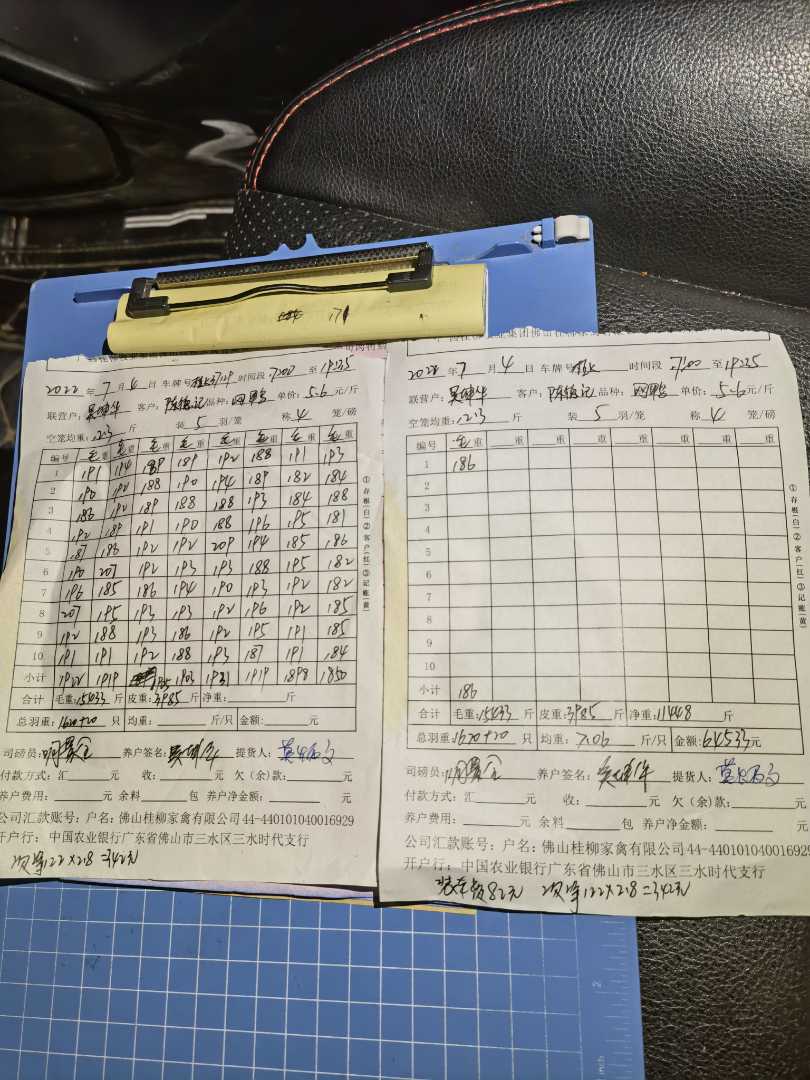 2022年7月4日 车牌号 时间段 7:00 至 19:25
联营户: 客户: 品种: 单价: 5.6 元/斤
空笼均重: 12.3 斤 装 5 羽/笼 称 4 笼/磅
编号 毛重 毛重 毛重 毛重 毛重 毛重 毛重 毛重
1 191 194 189 189 192 188 191 193
2 190 192 188 190 194 189 182 184
3 186 192 189 188 188 193 184 188
4 192 189 191 190 188 196 195 181
5 187 186 192 192 209 194 185 186
6 190 207 192 193 193 188 195 182
7 196 185 186 194 190 193 192 182
8 207 195 193 193 192 196 192 185
9 192 188 193 186 192 195 191 185
10 191 191 192 188 193 187 191 184
小计 1922 1919 1905 1903 1931 1919 1898 1850
合计 毛重: 15433 斤 皮重: 3985 斤 净重: 斤
总羽重: 1620+20 只 均重: 斤/只 金额: 元
司磅员: 养户签名: 提货人:
付款方式: 汇 元 收: 元 欠(余)款: 元
养户费用: 元 余料 包 养户净金额: 元
公司汇款账号: 户名: 佛山桂柳家禽有限公司44-440101040016929
开户行: 中国农业银行广东省佛山市三水区三水时代支行
122×2.8=342元
①存根(白)②客户(红)③记账(黄)
2022年7月4日 车牌号 时间段 7:00 至 19:25
联营户: 客户: 品种: 单价: 5.6 元/斤
空笼均重: 12.3 斤 装 5 羽/笼 称 4 笼/磅
编号 毛重 重 重 重 重 重 重 重
1 186
2
3
4
5
6
7
8
9
10
小计 186
合计 毛重: 15433 斤 皮重: 3985 斤 净重: 11448 斤
总羽重: 1620+20 只 均重: 7.06 斤/只 金额: 64533元
司磅员: 养户签名: 提货人:
付款方式: 汇 元 收: 元 欠(余)款: 元
养户费用: 元 余料 包 养户净金额: 元
公司汇款账号: 户名: 佛山桂柳家禽有限公司44-440101040016929
开户行: 中国农业银行广东省佛山市三水区三水时代支行
82元 122×2.8=342元
①存根(白)②客户(红)③记账(黄)
2
inch